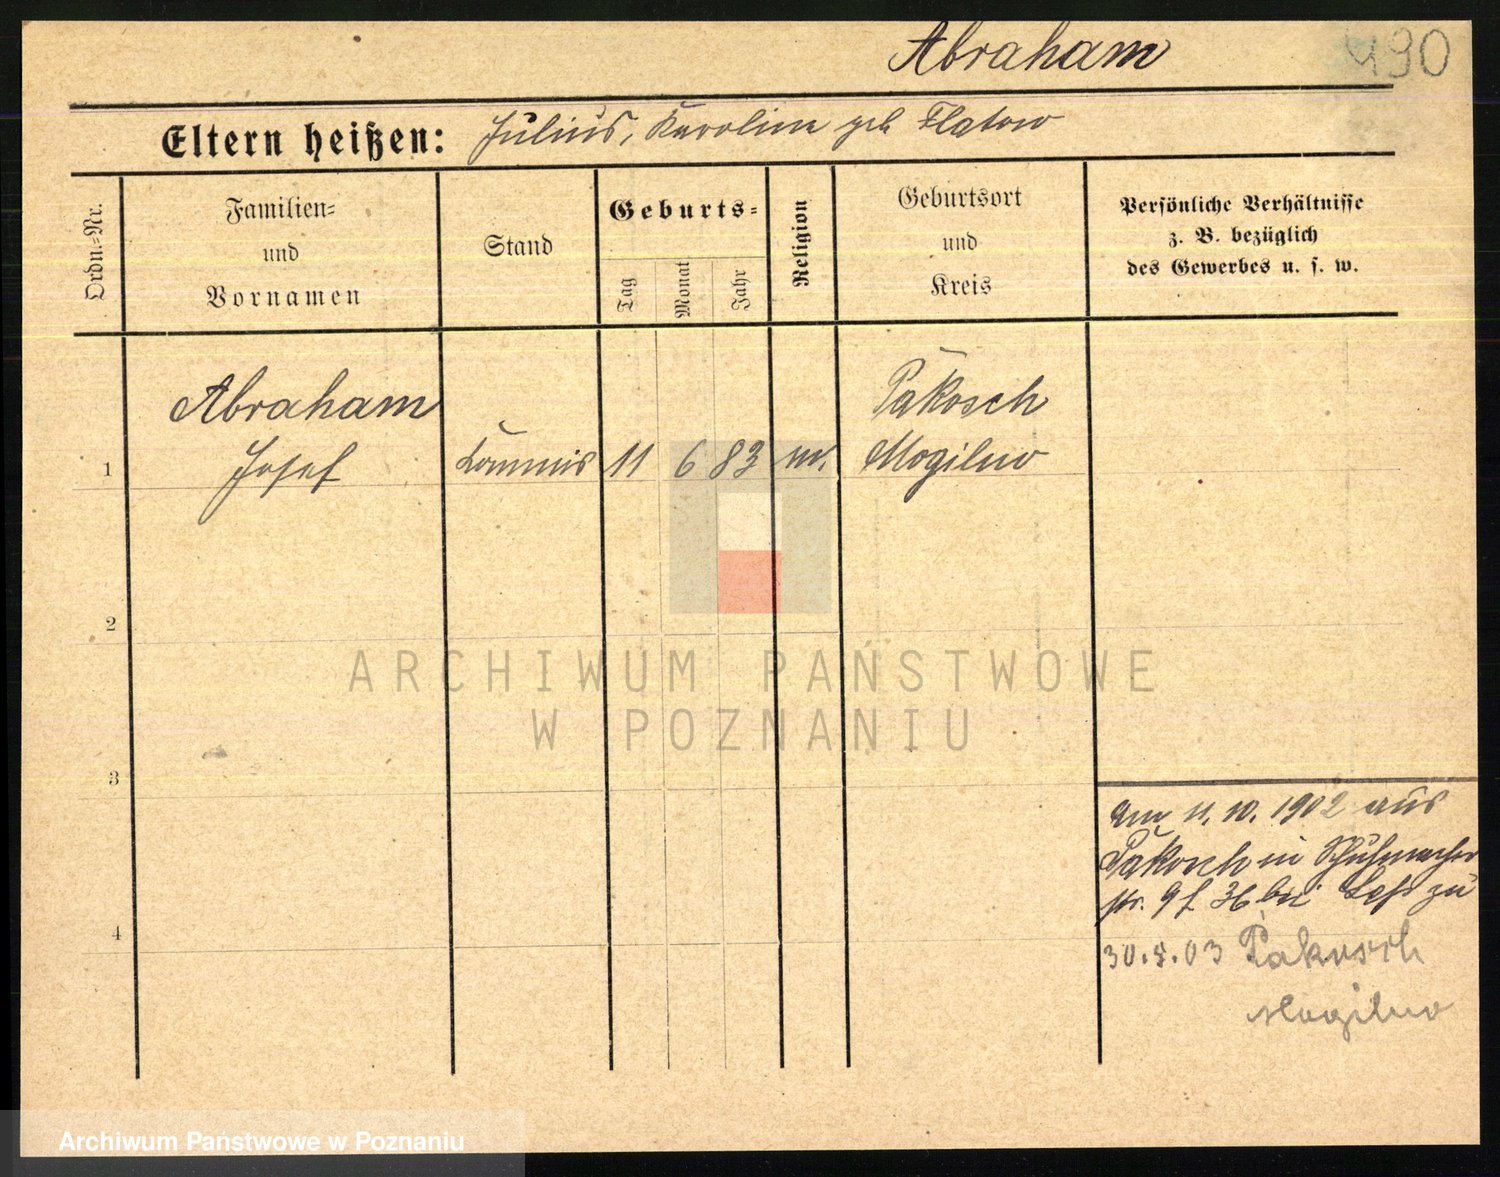 Abraham
490
Eltern heißen: Julius, Karoline geb Flatow
Ordn.=Nr.
Familien=
und
Vornamen
Stand
Geburts=
Tag
Monat
Jahr
Religion
Geburtsort
und
Kreis
Persönliche Verhältnisse
z. B. bezüglich
des Gewerbes u. s. w.
Abraham
Josef
1
Kommis
11
6
83
m.
Pakosch
Mogilno
2
3
4
am 11. 10. 1902 aus
Pakosch in Schuhmacher
str. 9 f 36 bei zu
30.8.03 Pakosch
Mogilno
ARCHIWUM PAŃSTWOWE
W POZNANIU
Archiwum Państwowe w Poznaniu